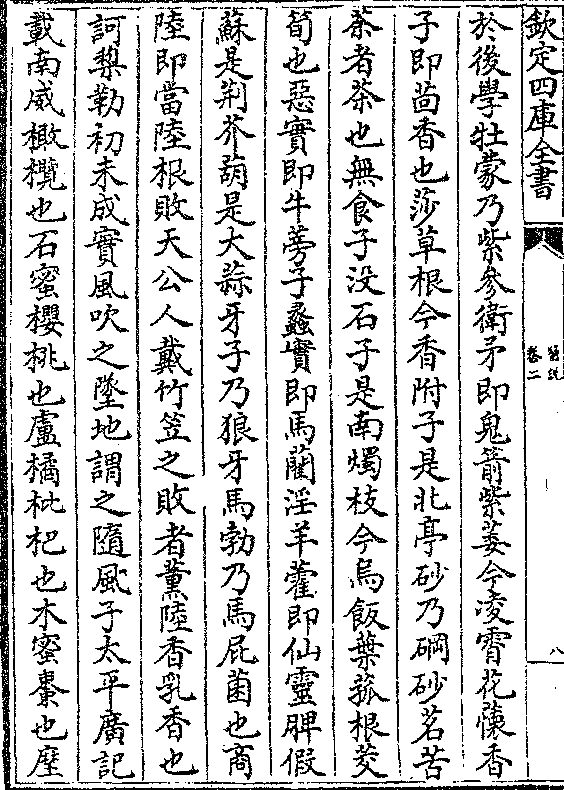 欽定四庫全書
醫說
卷二
八
於後學牡蒙乃紫參衛矛即鬼箭紫葳今凌霄花蘹香
子即茴香也莎草根今香附子是北亭砂乃硇砂茗苦
荼者茶也無食子没石子是南燭枝今烏飯葉菰根茭
筍也惡實即牛蒡子蠡實即馬藺淫羊藿即仙靈脾假
蘇是荆芥葫是大蒜牙子乃狼牙馬勃乃馬屁菌也商
陸即當陸根敗天公人戴竹笠之敗者薰陸香乳香也
訶棃勒初未成實風吹之墜地謂之隨風子太平廣記
載南威橄欖也石蜜櫻桃也盧橘枇杷也木蜜棗也歴